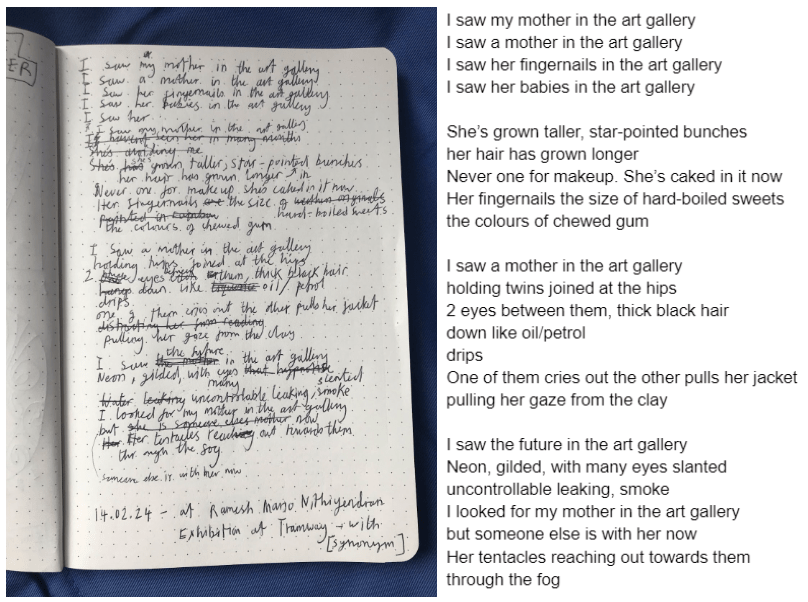 ER
I saw my mother in the art gallery
I saw a mother in the art gallery
I saw her fingernails in the art gallery
I saw her babies in the art gallery
I saw her
I saw my mother in the art gallery
I haven't seen her in many months
She's avoiding me
She's has grown taller, star-pointed bunches
her hair has grown longer in
Never one for makeup. She's caked in it now
Her fingernails are the size of
hard-boiled sweets
the colours of chewed gum
I saw a mother in the art gallery
holding twins joined at the hips
2 eyes between them, thick black hair
down like oil/petrol
drips
one of them cries out the other pulls her jacket
distracting her from reading
pulling her gaze from the clay
the future
I saw the mother in the art gallery
Neon, gilded, with eyes that
many slanted
water leaking uncontrollable leaking, smoke
I looked for my mother in the art gallery
but she is someone elses mother now
Her Her tentacles reaching out towards them
through the fog
someone else is with her now
14.02.24 - at Ramesh Mario Nithiyendran
Exhibition at Tramway - with
[synonym]
I saw my mother in the art gallery
I saw a mother in the art gallery
I saw her fingernails in the art gallery
I saw her babies in the art gallery
She’s grown taller, star-pointed bunches
her hair has grown longer
Never one for makeup. She’s caked in it now
Her fingernails the size of hard-boiled sweets
the colours of chewed gum
I saw a mother in the art gallery
holding twins joined at the hips
2 eyes between them, thick black hair
down like oil/petrol
drips
One of them cries out the other pulls her jacket
pulling her gaze from the clay
I saw the future in the art gallery
Neon, gilded, with many eyes slanted
uncontrollable leaking, smoke
I looked for my mother in the art gallery
but someone else is with her now
Her tentacles reaching out towards them
through the fog